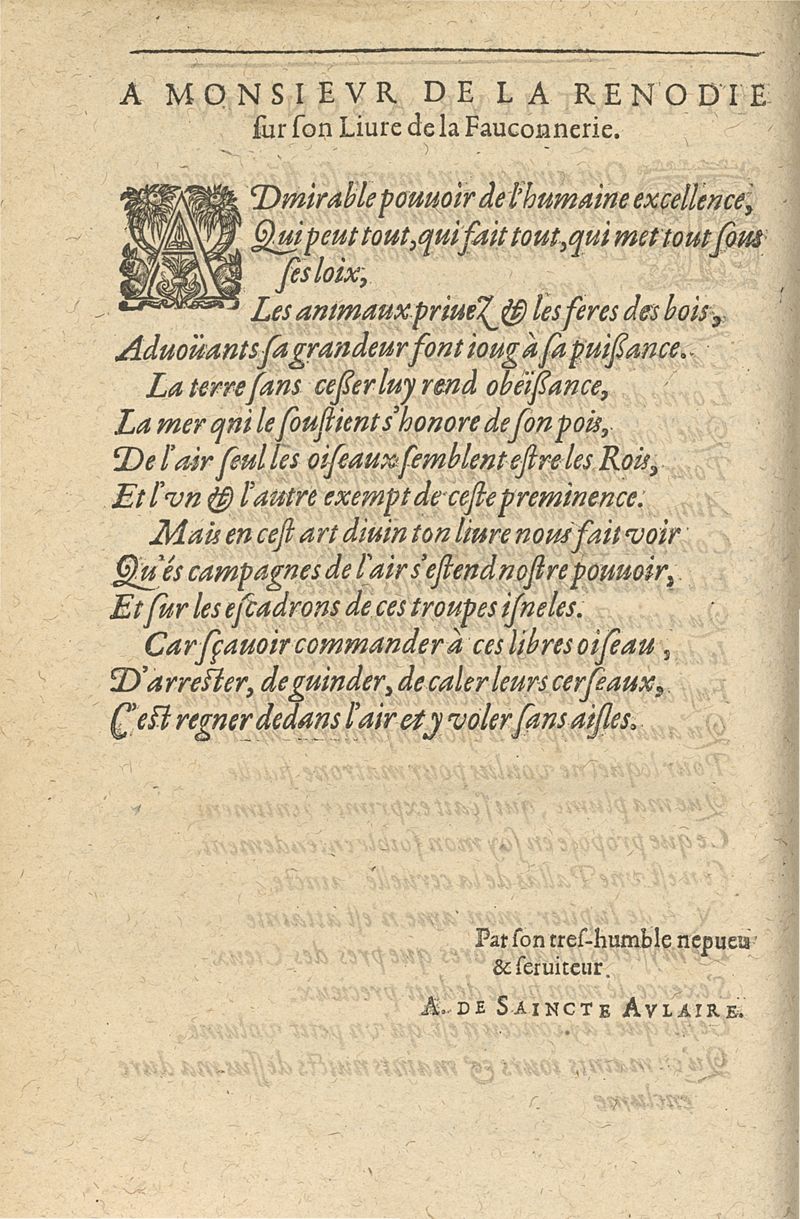 A MONSIEVR DE LA RENODIE
ſur ſon Liure de la Fauconnerie.
ADmirable pouuoir de l'humaine excellence,
Qui peut tout, qui fait tout, qui met tout ſous
ſes loix,
Les animaux priuez & les feres des bois,
Aduoüants ſa grandeur font ioug à ſa puißance.
La terre ſans ceßer luy rend obeïßance,
La mer qni le ſouſtient s'honore de ſon pois,
De l'air ſeul les oiſeaux ſemblent eſtre les Rois,
Et l'vn & l'autre exempt de ceſte preminence.
Mais en ceſt art diuin ton liure nous fait voir
Qu'és campagnes de l'air s'eſtend noſtre pouuoir,
Et ſur les eſcadrons de ces troupes iſneles.
Car ſçauoir commander à ces libres oiſeau ,
D'arreſter, de guinder, de caler leurs cerſeaux,
C'eſt regner dedans l'air et y voler ſans aiſles.
Par ſon treſ-humble nepueu
& ſeruiteur.
A. DE SAINCTE AVLAIRE.